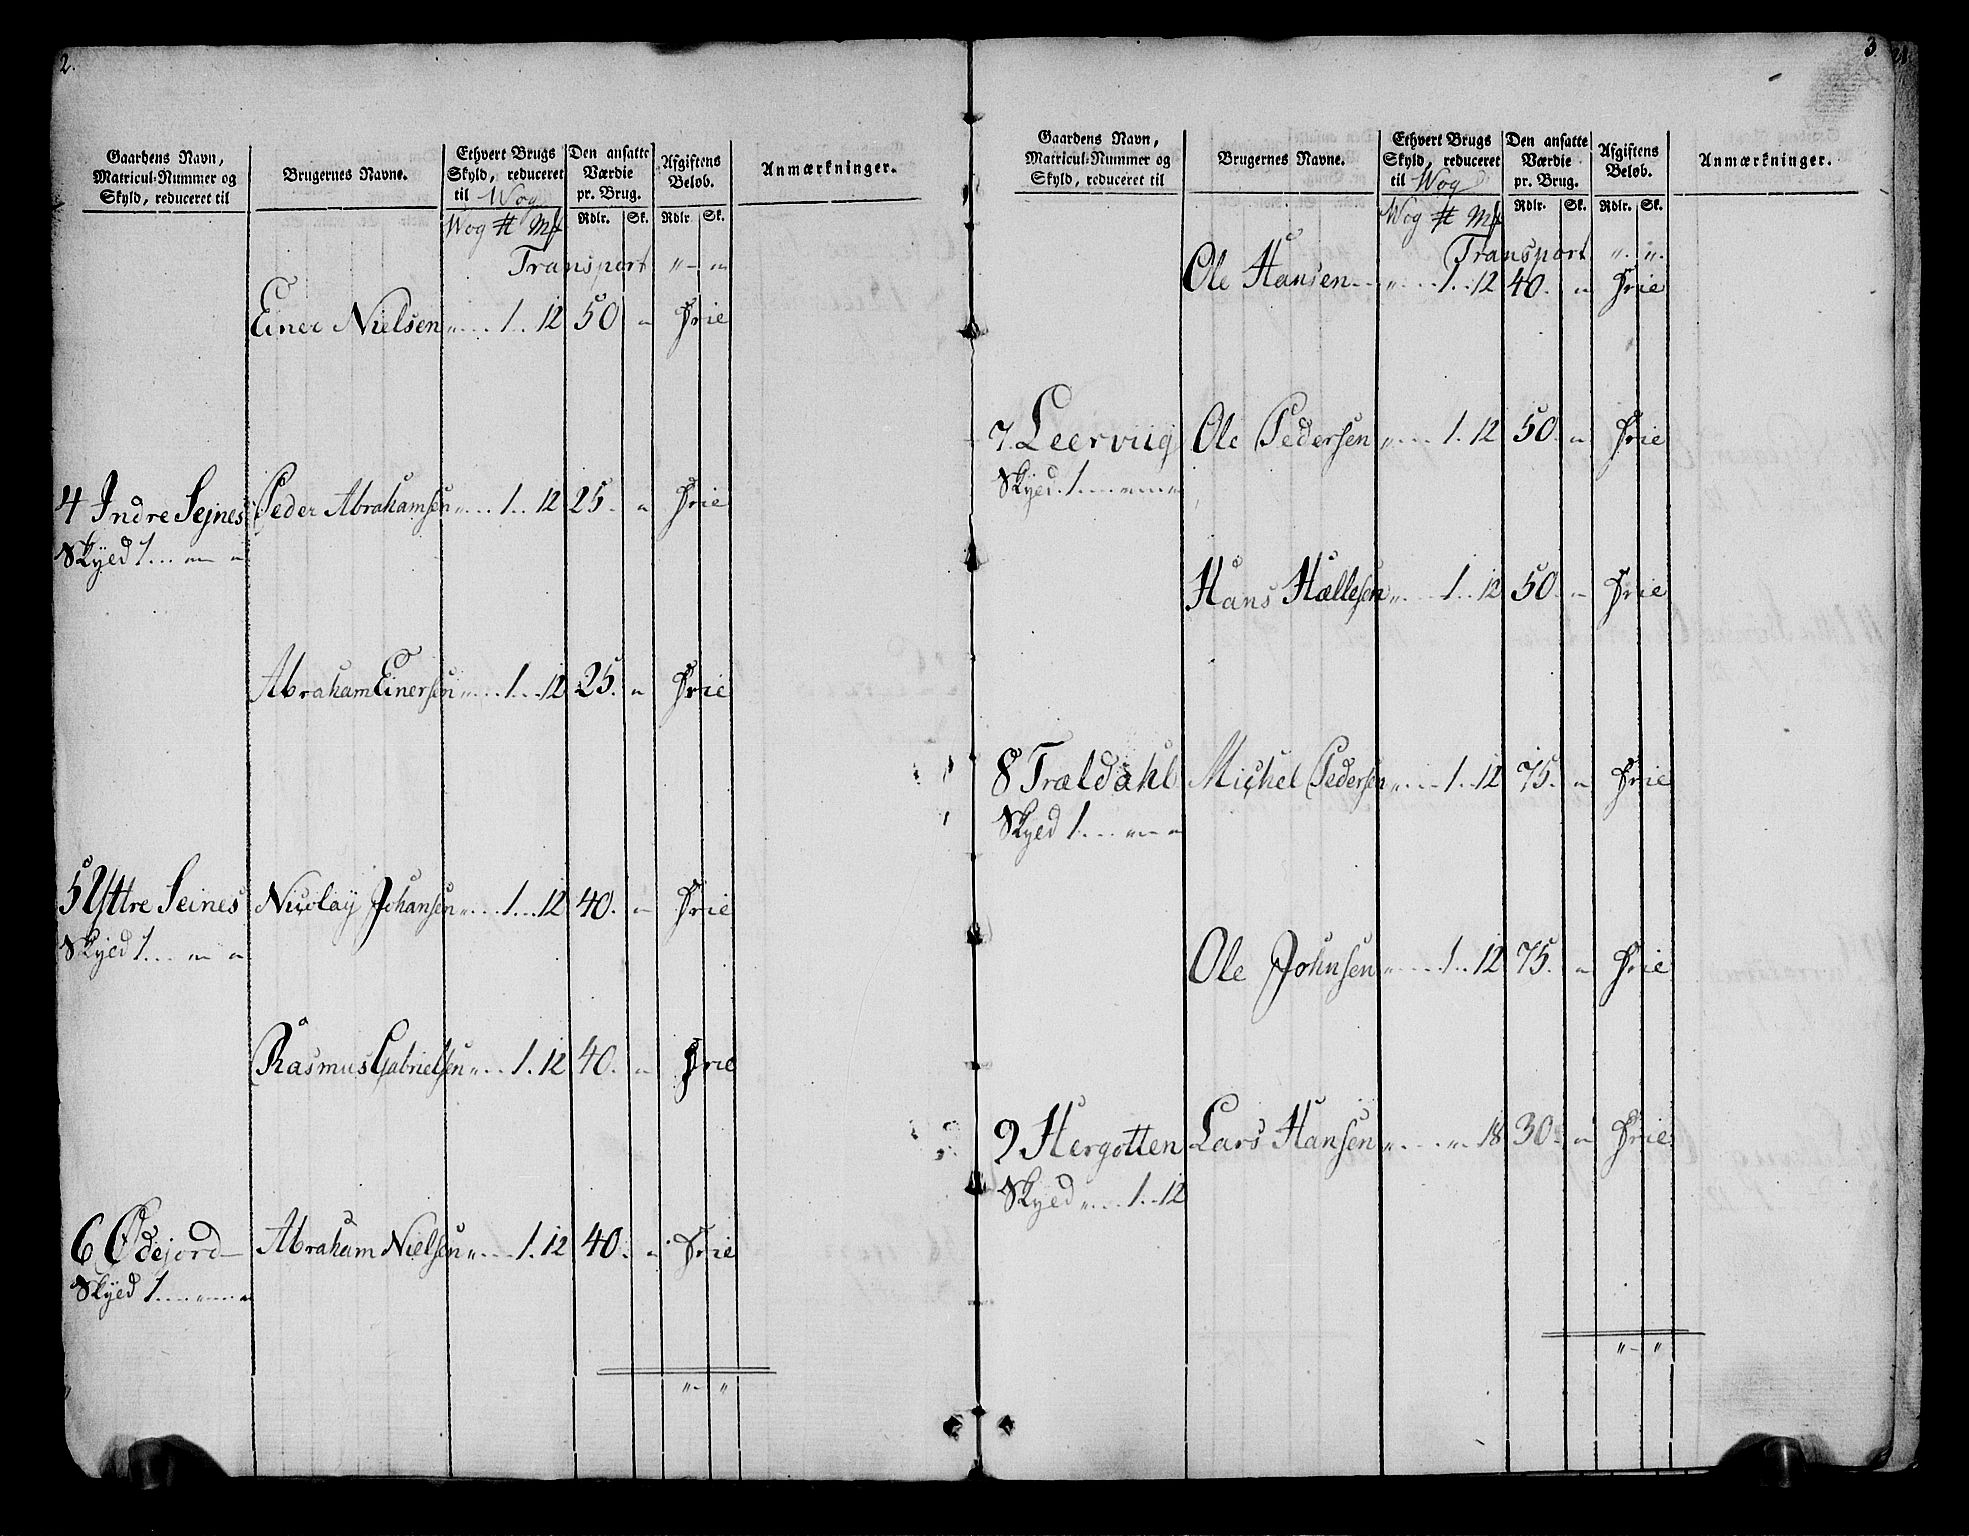 2.
Gaardens Navn, Matricul-Nummer og Skyld, reduceret til
Brugernes Navne.
Ethvert Brugs Skyld, reduceret til Wog
Den ansatte Værdie pr. Brug.
Afgiftens Beløb.
Anmærkninger.
Wog ℔ Mk Rdlr. Sk. Rdlr. Sk.
Transport „ – „
Einer Nielsen „ . . . 1 . . 12 50 „ Frie
4 Indre Sejnes Peder Abrahamsen „ . . . 1 . . 12 25. „ Frie
Skyed 1 . . . „ – „
Abraham Einersen „ . . . . 1 . . . 12 25. „ Frie
5 Yttre Seines Nicolay Johansen „ . . . 1 . . . 12 40. „ Frie
Skyed 1 . . . „ – „
Rasmus Gabrielsen „ . . . 1 . 12 40. „ Frie
6 Ødejord Abraham Nielsen „ . . . . 1 . 12 40. „ Frie
Skyed 1 . . . . „ . . . . „
„ – „
3
Gaardens Navn, Matricul-Nummer og Skyld, reduceret til
Brugernes Navne.
Ethvert Brugs Skyld, reduceret til Wog
Den ansatte Værdie pr. Brug.
Afgiftens Beløb.
Anmærkninger.
Wog ℔ Mk Rdlr. Sk. Rdlr. Sk.
Transport „ . „ .
Ole Hansen „ . . . . 1 . . 12 40. „ Frie
7. Leerviig Ole Pedersen „ . . . . 1 . 12 50. „ Frie
Skyed. 1 . . . . „ – „ – „
Hans Hællesen „ . . . . 1 . . 12 50. „ Frie
8 Trældahl Michel Pedersen „ . . . . 1 . . 12 75. „ Frie
Skyed 1 . . . „ – „
Ole Johnsen „ . . . . . 1 . . 12 75. „ Frie
9 Hergotten Lars Hansen „ . . . . „ . 18 30. „ Frie
Skyed „ . . . . 1 . . 12
„ – „